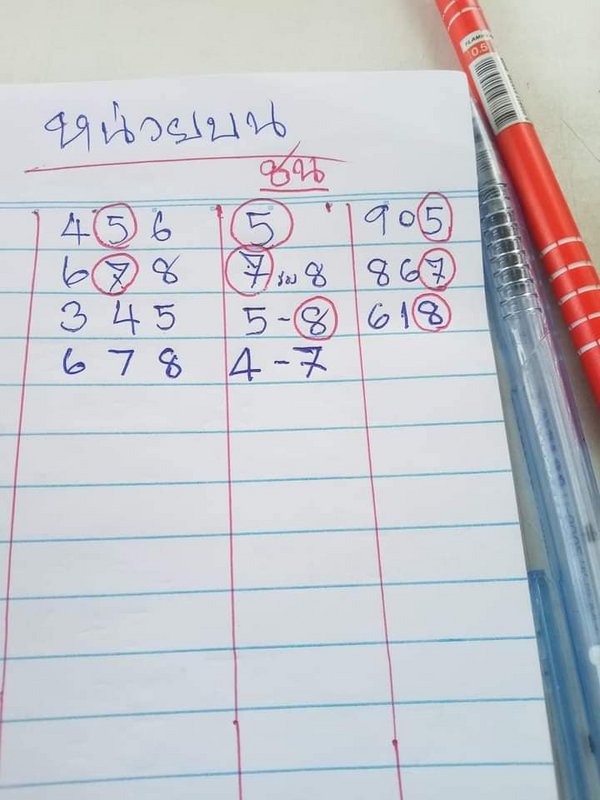 หน่วยบน
ชน
4 5 6 5 905
6 7 8 7 รอง 8 867
3 4 5 5-8 618
6 7 8 4-7
0.5